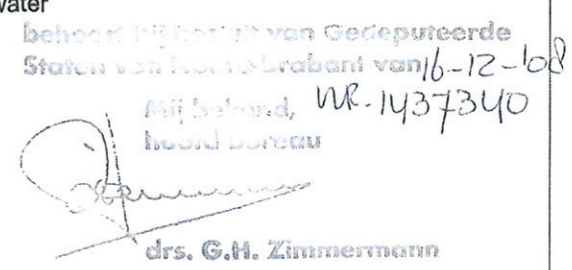 water
behoort bij besluit van Gedeputeerde
Staten van Noord-Brabant van 16-12-'08
Mij bekend, NR. 1437340
hoofd bureau
drs. G.H. Zimmermann